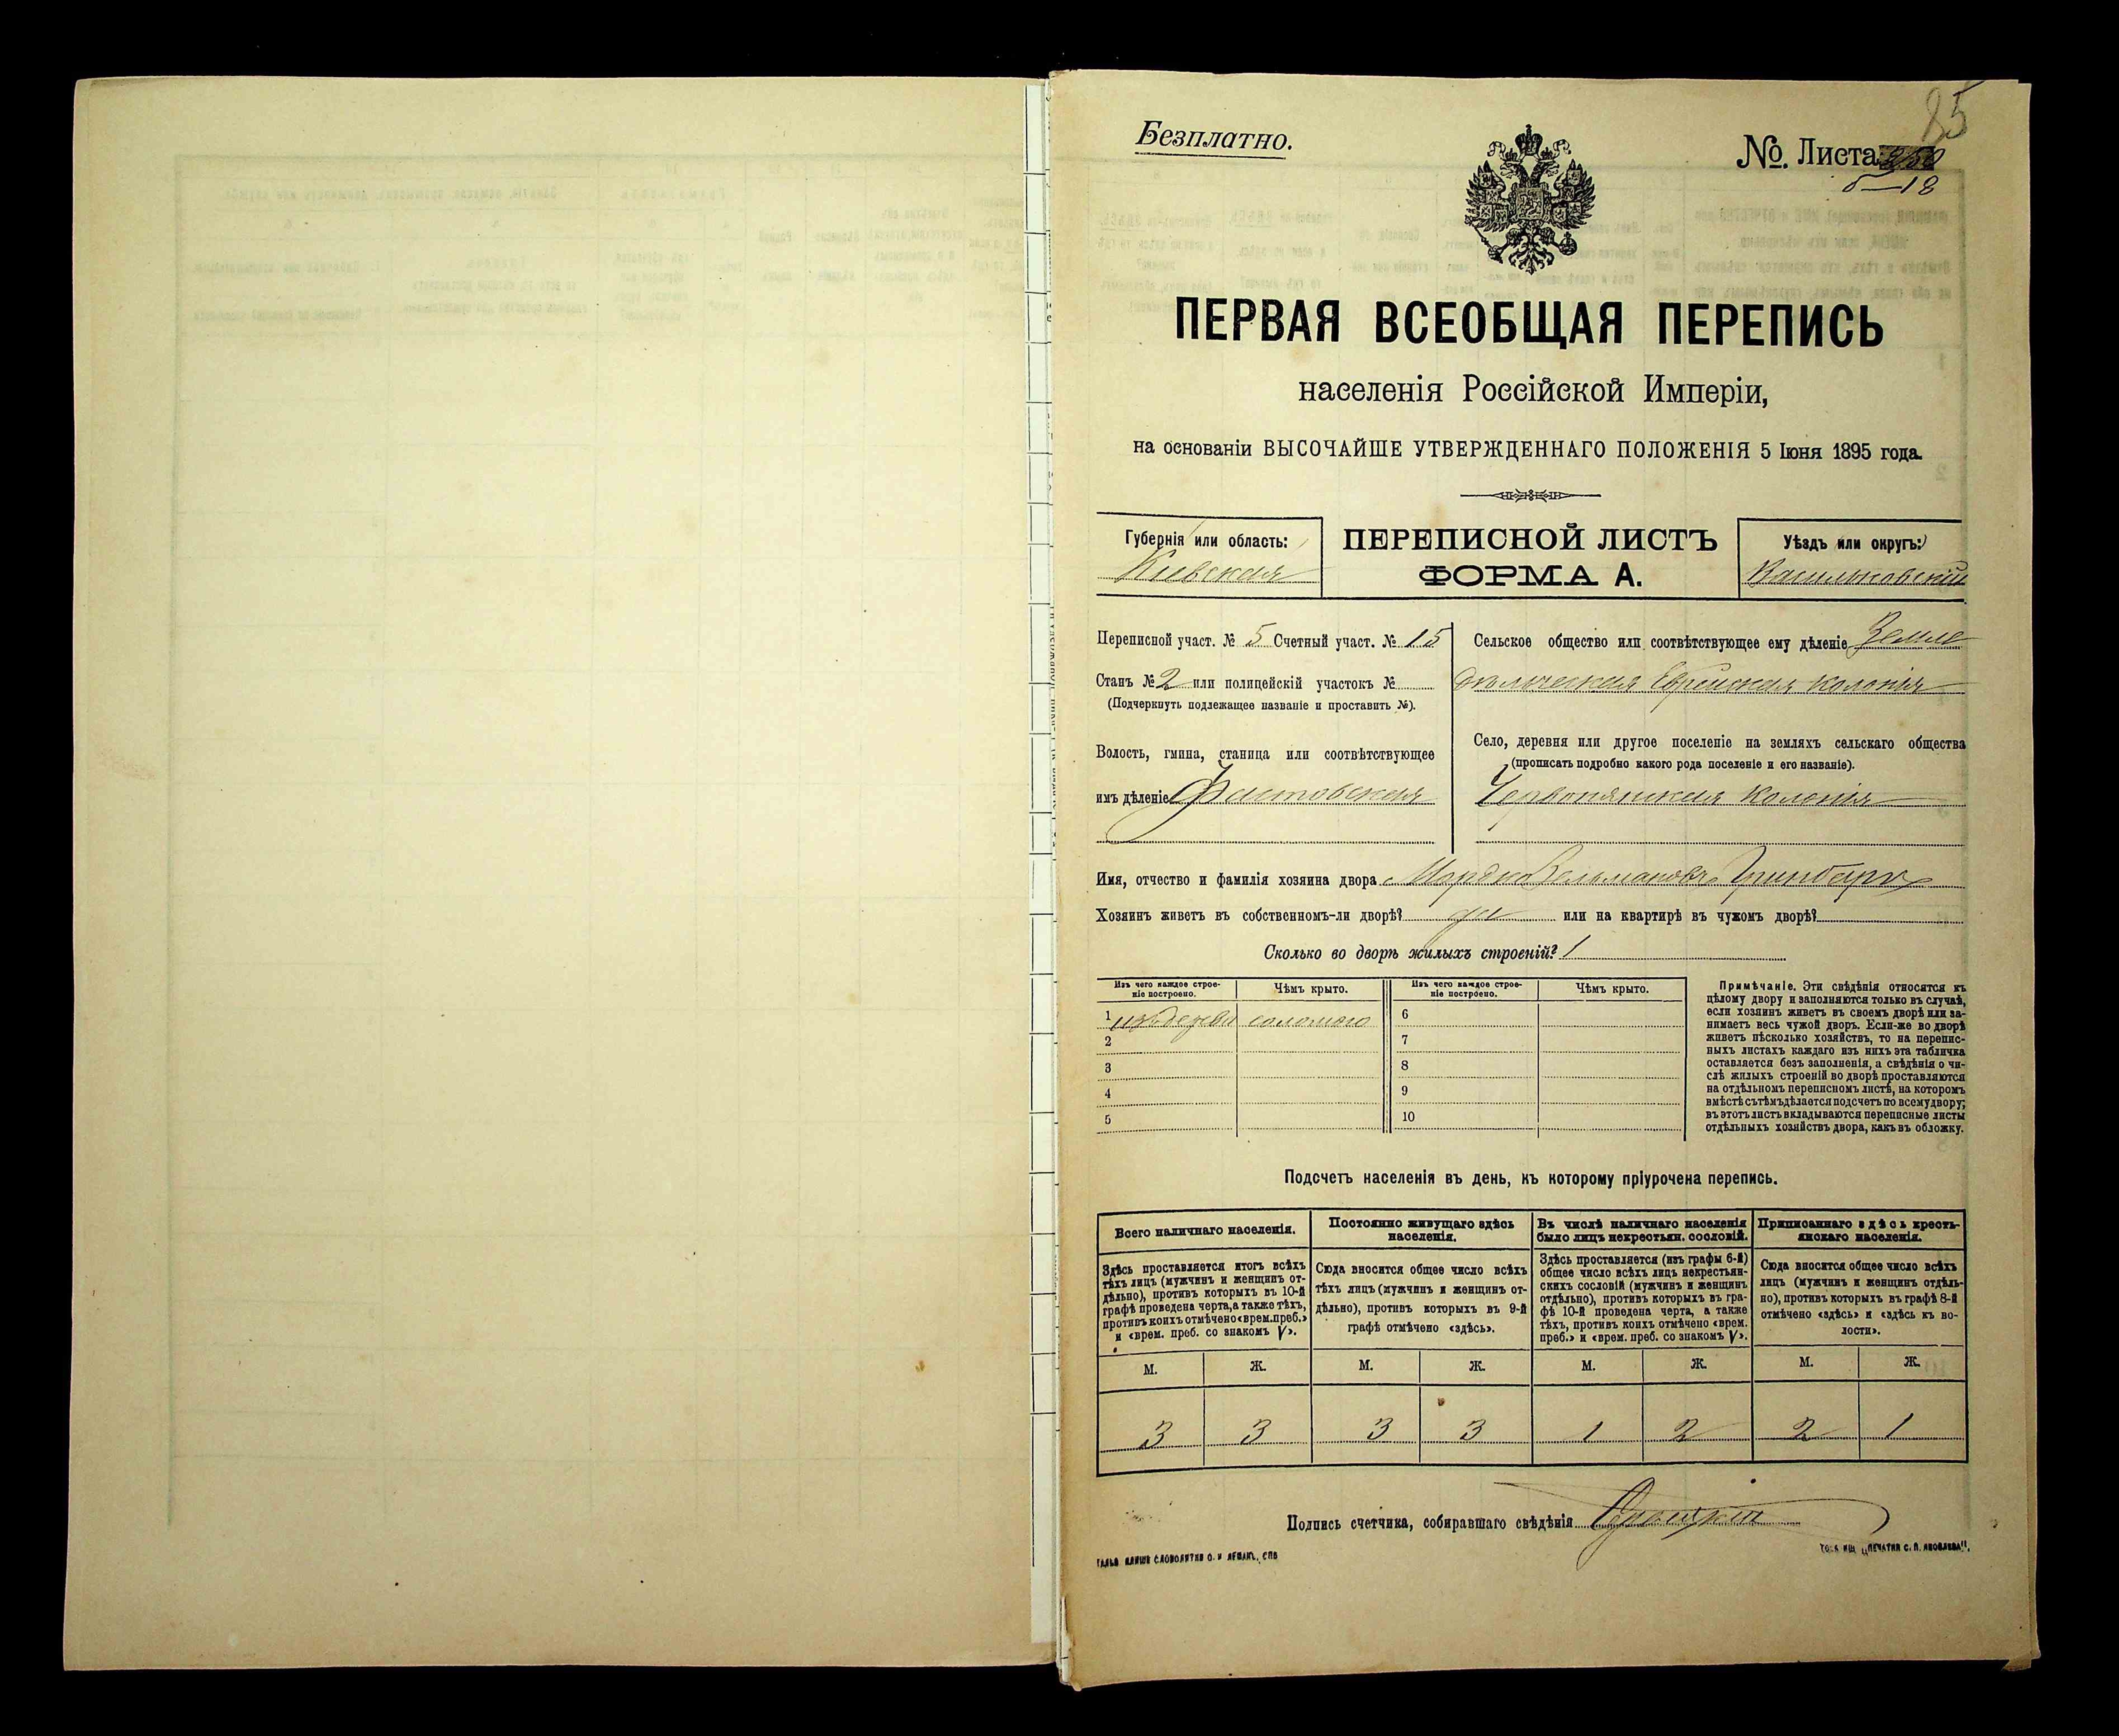 85
Безплатно.
№. Листа
5—18
ПЕРВАЯ ВСЕОБЩАЯ ПЕРЕПИСЬ
населенія Россійской Имперіи,
на основаніи ВЫСОЧАЙШЕ УТВЕРЖДЕННАГО ПОЛОЖЕНІЯ 5 Іюня 1895 года.
Губернія или область:
Кіевская
ПЕРЕПИСНОЙ ЛИСТЪ
ФОРМА А.
Уѣздъ или округъ:
Васильковскій
Переписной участ. № 5 Счетный участ. № 15
Станъ № 2 или полицейскій участокъ №
(Подчеркнуть подлежащее названіе и проставить №).
Волость, гмина, станица или соотвѣтствующее
имъ дѣленіе Фастовская
Сельское общество или соотвѣтствующее ему дѣленіе Земле
дѣльческая Еврейская колонія
Село, деревня или другое поселеніе на земляхъ сельскаго общества
(прописать подробно какого рода поселеніе и его названіе).
Червонянская колонія
Имя, отчество и фамилія хозяина двора Мордко Зельмановъ
Хозяинъ живетъ въ собственномъ-ли дворѣ? да или на квартирѣ въ чужомъ дворѣ?
Сколько во дворѣ жилыхъ строеній? 1
Изъ чего каждое строе-
ніе построено.
Чѣмъ крыто.
Изъ чего каждое строе-
ніе построено.
Чѣмъ крыто.
1 изъ дерева соломою 6
2 7
3 8
4 9
5 10
Примѣчаніе. Эти свѣдѣнія относятся къ
цѣлому двору и заполняются только въ случаѣ,
если хозяинъ живетъ въ своемъ дворѣ или за-
нимаетъ весь чужой дворъ. Если-же во дворѣ
живетъ нѣсколько хозяйствъ, то на перепис-
ныхъ листахъ каждаго изъ нихъ эта табличка
оставляется безъ заполненія, а свѣдѣнія о чи-
слѣ жилыхъ строеній во дворѣ проставляются
на отдѣльномъ переписномъ листѣ, на которомъ
вмѣстѣ съ тѣмъ дѣлается подсчетъ по всему двору;
въ этотъ листъ вкладываются переписные листы
отдѣльныхъ хозяйствъ двора, какъ въ обложку.
Подсчетъ населенія въ день, къ которому пріурочена перепись.
Всего наличнаго населенія.
Здѣсь проставляется итогъ всѣхъ
тѣхъ лицъ (мужчинъ и женщинъ от-
дѣльно), противъ которыхъ въ 10-й
графѣ проведена черта, а также тѣхъ,
противъ коихъ отмѣчено «врем. преб.»
и «врем. преб. со знакомъ V».
Постоянно живущаго здѣсь
населенія.
Сюда вносится общее число всѣхъ
тѣхъ лицъ (мужчинъ и женщинъ от-
дѣльно), противъ которыхъ въ 9-й
графѣ отмѣчено «здѣсь».
Въ числѣ наличнаго населенія
было лицъ некрестьян. сословій.
Здѣсь проставляется (изъ графы 6-й)
общее число всѣхъ лицъ некрестьян-
скихъ сословій (мужчинъ и женщинъ
отдѣльно), противъ которыхъ въ гра-
фѣ 10-й проведена черта, а также
тѣхъ, противъ коихъ отмѣчено «врем.
преб.» и «врем. преб. со знакомъ V».
Приписаннаго здѣсь кресть-
янскаго населенія.
Сюда вносится общее число всѣхъ
лицъ (мужчинъ и женщинъ отдѣль-
но), противъ которыхъ въ графѣ 8-й
отмѣчено «здѣсь» и «здѣсь къ во-
лости».
М. Ж. М. Ж. М. Ж. М. Ж.
3 3 3 3 1 2 2 1
Подпись счетчика, собиравшаго свѣдѣнія